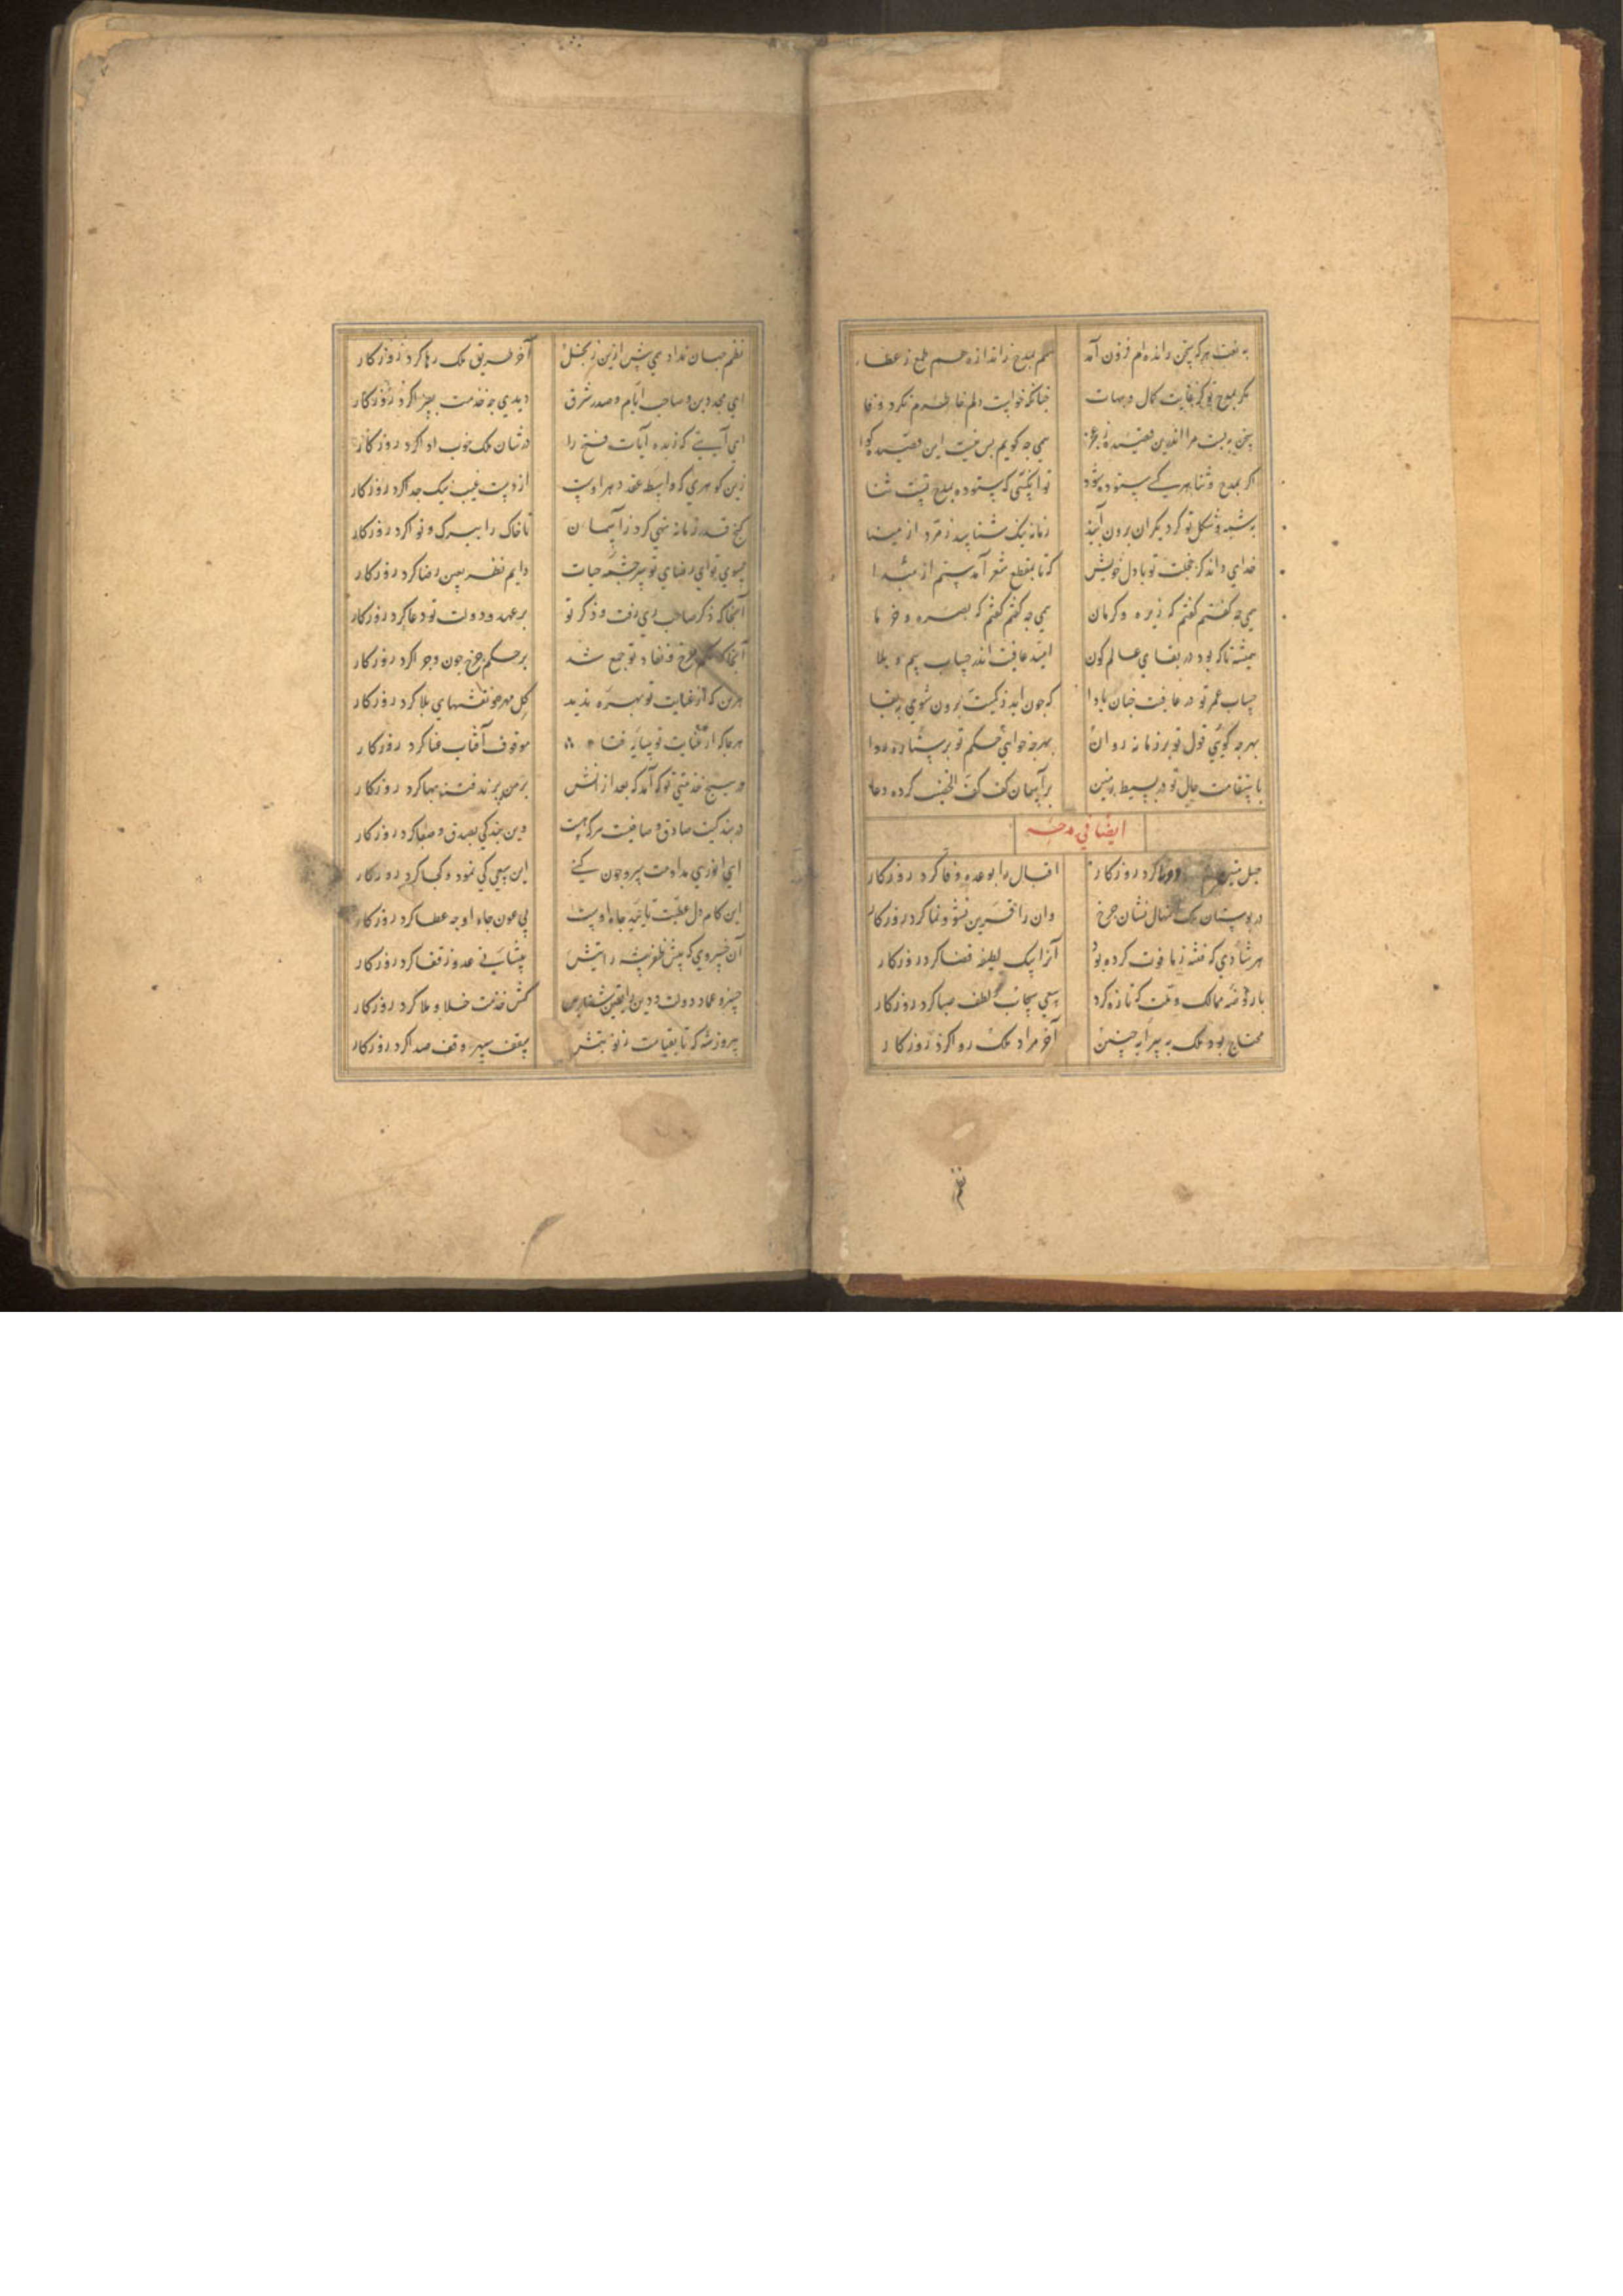 به نعت هر که سخن رانده‌ام فزون آمد همم بمدح ز اندازه هم طمع ز عطا
مگر بمدح تو کز غایت کمال و بهات چنانکه خواست دلم خاطرم نکرد وفا
سخن به بست مرا اندرین قصیده ز عجز همی چه گویم بس نیست این قصیده گوا
اگر بمدح و ثنا هر کسی ستوده شود تو آن کسی که ستوده بمدح تست ثنا
به شبه و شکل تو گر دیگران برون آیند زمانه نیک شناسد زمرد از مینا
خدای داند کز خجلت تو با دل خویش که تا بمقطع شعر آمدستم از مبدا
همی چه گفتم گفتم که زیره و کرمان همی چه گفتم گفتم که بصره و خرما
همیشه تا که بود در بقای عالم کون امید عافیت اندر حساب بیم و بلا
حساب عمر تو در عافیت چنان بادا که چون ابد ز کمیت برون شوی ز بقا
بهر چه گویی قول تو بر زمانه روان بهر چه خواهی حکم تو بر ستاره روا
باستقامت حال تو در بسیط زمین بر آسمان کف کف الخضیب کرده دعا
ایضا فی مدحه
حبل متین دوتا کرد روزگار اقبال را بوعده وفا کرد روزگار
در بوستان ملک نهال نشان چرخ وان را قرین نشو و نما کرد روزگار
هر شادی که فتنه ز ما فوت کرده بود آنرا بیک لطیفه قضا کرد روزگار
بار روضه ممالک و ملت که تازه کرد سعی سحاب لطف صبا کرد روزگار
محتاج بود ملک به پیرایه چنین آخر مراد ملک روا کرد روزگار
نظم
نظم جهان نداد همی پیش ازین ز بخل آخر طریق ملک رها کرد روزگار
ای مجد دین و صاحب ایام و صدر شرق دیدی چه خدمت بسزا کرد روزگار
ای آیتی که زبده آیات فتح را در شان ملک خوب ادا کرد روزگار
زین گوهری که واسطه عقد دهر اوست از دست غیب نیک جدا کرد روزگار
کنج قدر زمانه تهی کرد ز آسمان تا خاک را ببرگ و نوا کرد روزگار
بسوی تو ای رضای تو سرچشمه حیات دایم نظر بعین رضا کرد روزگار
آنجا که ذکر صاحب ری رفت و ذکر تو بر عهد و دولت تو دعا کرد روزگار
آنجا که حکم چرخ و نفاد تو جمع شد بر حکم چرخ چون و چرا کرد روزگار
هر تن که از عنایت تو بهره ندید کل مهره نقشهای بلا کرد روزگار
هر جا که از عنایت تو سایه فتاد موقوف آفتاب عنا کرد روزگار
در هیچ خدمتی تو که آمد که بعد از آنش بر من یزید فتنه بها کرد روزگار
در بندگیت صادق و صافیست هر که هست وین بندگی بصدق و صفا کرد روزگار
ای انوری مداومت سیر چون کنی این سعی کی نمود و کجا کرد روزگار
این کام دل عطیت تایید جاه اوست بی عون جاه او چه عطا کرد روزگار
آن خسروی که پیش ظفر پیشه رایتش پیشانی عدو ز قفا کرد روزگار
خسرو عماد دولت و دین کمش خدمت خلا و ملا کرد روزگار
پیروز شه که تا بقیامت ز نوبتش سقف سپهر وقف صدا کرد روزگار